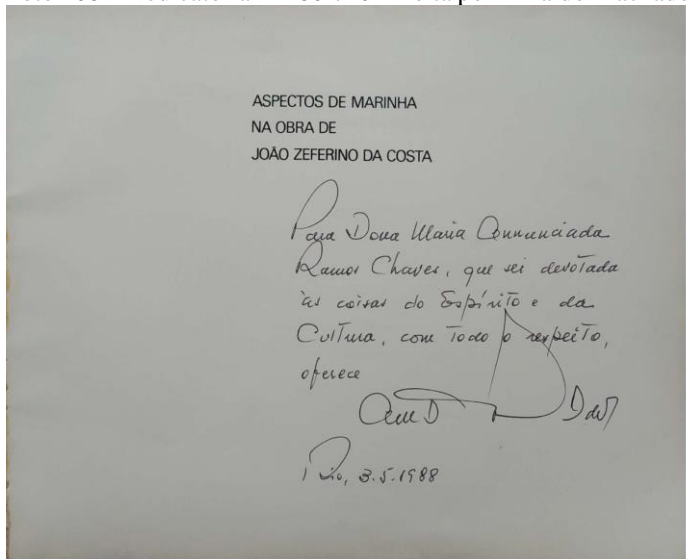 ASPECTOS DE MARINHA
NA OBRA DE
JOÃO ZEFERINO DA COSTA
Para Dona Maria Annunciada
Ramos Chaves, que sei devotada
às coisas do Espírito e da
Cultura, com todo o respeito,
oferece
Rio, 3.5.1988